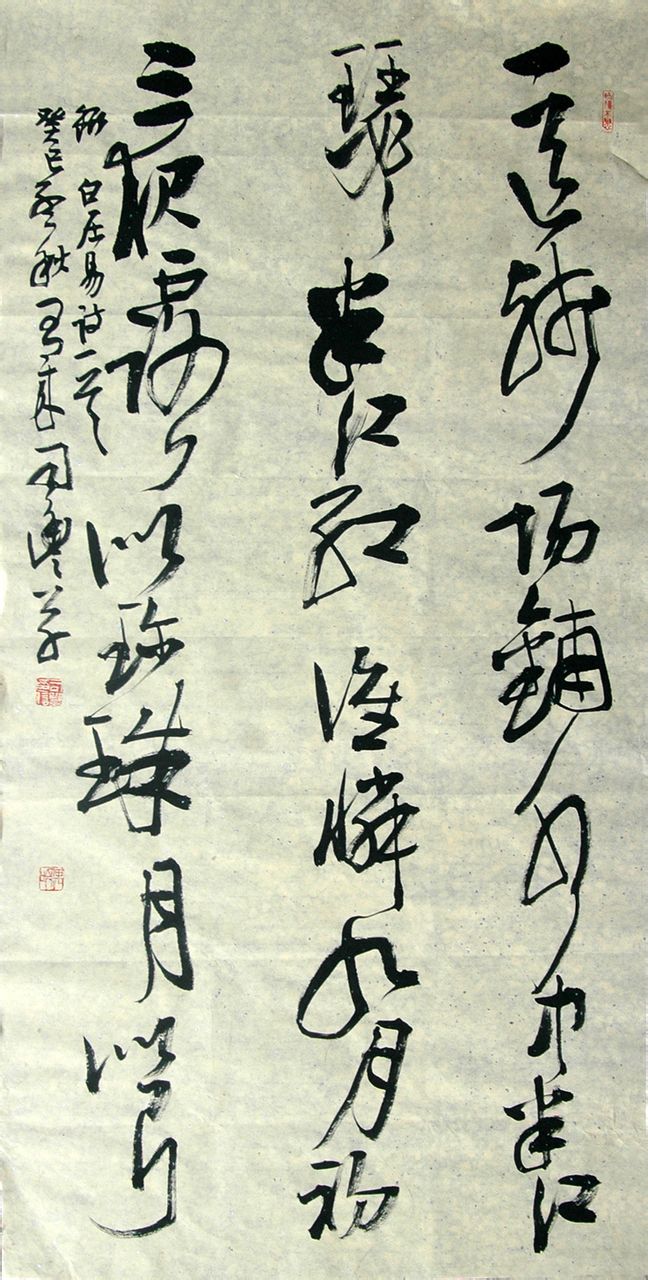 一道残阳鋪水中半江
瑟瑟半江红谁憐九月初
三夜露似珍珠月似弓
録白居易诗一首
癸巳孟秋